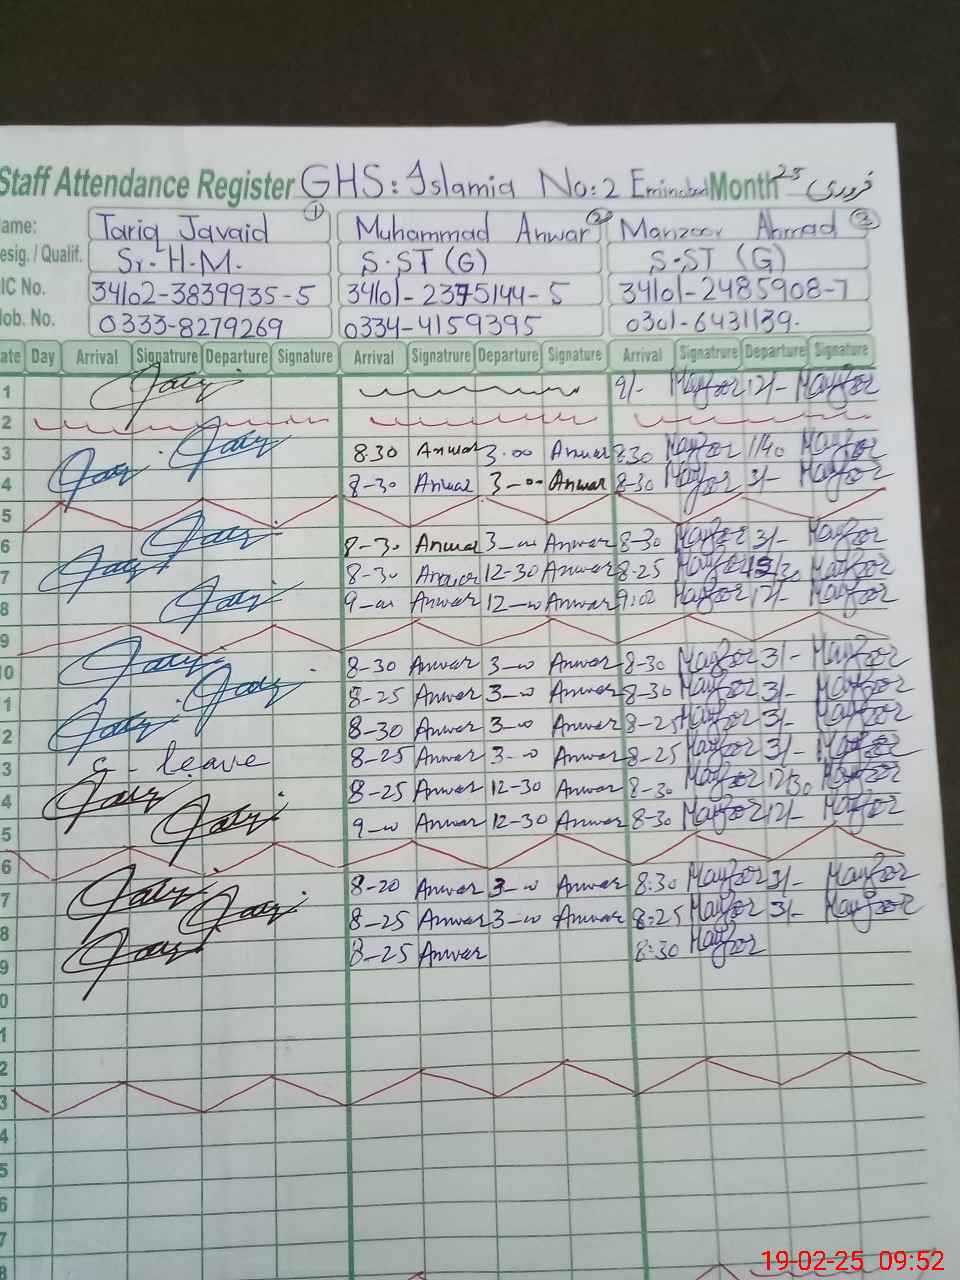 Staff Attendance Register GHS: Islamia No: 2 Eminabad Month 25 فروری
ame: Tariq Javaid ① Muhammad Anwar ② Manzoor Ahmad ③
esig. / Qualif. Sr. H.M. S.ST (G) S.ST (G)
IC No. 34102-3839935-5 34101-2375144-5 34101-2485908-7
ob. No. 0333-8279269 0334-4159395 0301-6431139.
ate Day Arrival Signatrure Departure Signature Arrival Signatrure Departure Signature Arrival Signatrure Departure Signature
1 9/- 12/-
2
3 8.30 Anwar 3.00 Anwar 8.30 1140
4 8-30 Anwar 3-00 Anwar 8-30 3/-
5
6 8-30 Anwar 3-00 Anwar 8-30 3/-
7 8-30 Anwar 12-30 Anwar 8-25
8 9-00 Anwar 12-00 Anwar 9:00 12/-
9
10 8-30 Anwar 3-00 Anwar 8-30 3/-
1 8-25 Anwar 3-00 Anwar 8-30 3/-
2 8-30 Anwar 3-00 Anwar 8-25 3/-
3 leave 8-25 Anwar 3-00 Anwar 8-25 3/-
4 8-25 Anwar 12-30 Anwar 8-30 12/30
5 9-00 Anwar 12-30 Anwar 8-30 12/-
6
7 8-20 Anwar 3-00 Anwar 8:30 3/-
8 8-25 Anwar 3-00 Anwar 8:25 3/-
9 8-25 Anwar 8:30
0
1
2
3
4
5
6
7
8
19-02-25 09:52